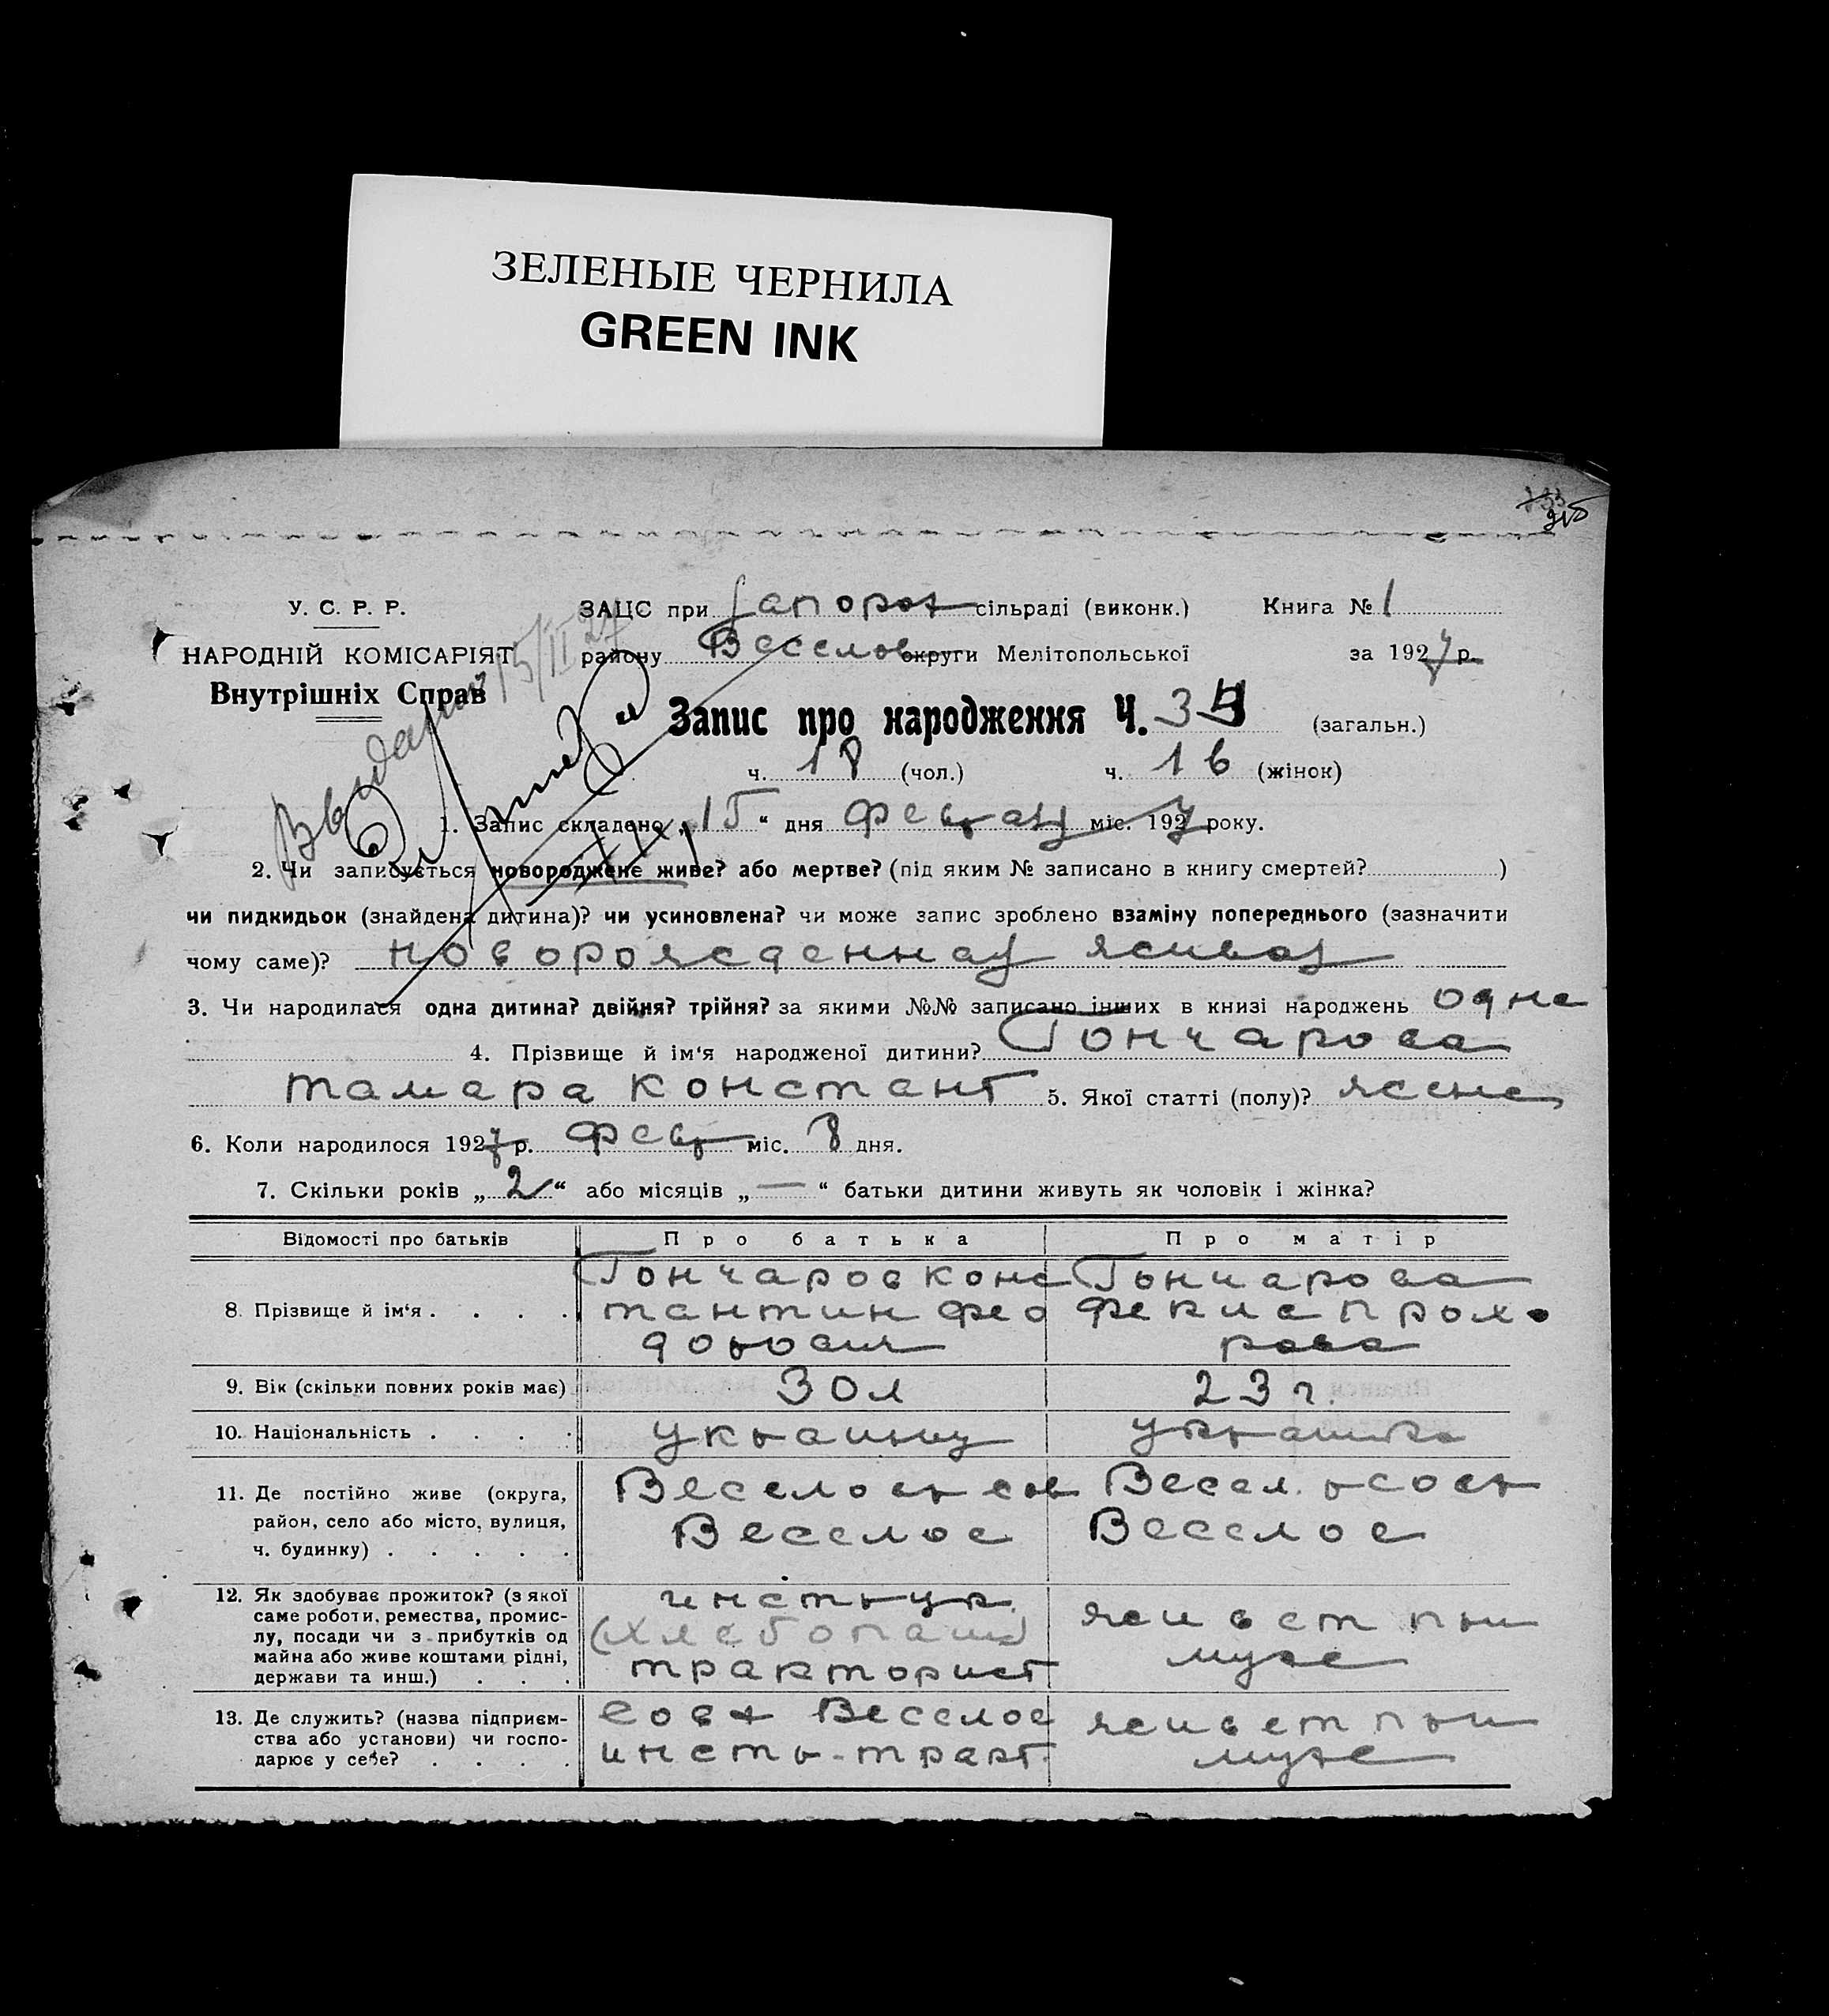 ЗЕЛЕНЫЕ ЧЕРНИЛА
GREEN INK
У. С. Р. Р.
НАРОДНІЙ КОМІСАРІЯТ
Внутрішніх Справ
ЗАЦС при Запорож сільраді (виконк.) Книга № 1
району Веселов округи Мелітопольської за 1927 р.
Запис про народження Ч. 34 (загальн.)
ч. 18 (чол.) ч. 16 (жінок)
1. Запис складено „15“ дня февраля міс. 1927 року.
2. Чи записується новороджене живе? або мертве? (під яким № записано в книгу смертей? )
чи пидкидьок (знайдена дитина)? чи усиновлена? чи може запис зроблено взаміну попереднього (зазначити
чому саме)? новорожденная живая
3. Чи народилася одна дитина? двійня? трійня? за якими №№ записано інших в книзі народжень одна
4. Прізвище й ім‘я народженої дитини? Гончарова
тамара констант 5. Якої статті (полу)? женс
6. Коли народилося 1927 р. февр міс. 8 дня.
7. Скільки років „2“ або місяців „—“ батьки дитини живуть як чоловік і жінка?
Відомості про батьків Про батька Про матір
8. Прізвище й ім‘я . . . . Гончаров конс Гончарова
тантин фео фекла прох
дорович рова
9. Вік (скільки повних років має) 30 л 23 г.
10. Національність . . . . украинец украинка
11. Де постійно живе (округа, Весел
район, село або місто, вулиця, Веселое Веселое
ч. будинку) . . . . .
12. Як здобуває прожиток? (з якої инструк.
саме роботи, ремества, промис- живет при
лу, посади чи з прибутків од (хлебопаш)
майна або живе коштами рідні, тракторист муже
держави та инш.) . . .
13. Де служить? (назва підприєм- совх Веселое живет при
ства або установи) чи госпо- инстр-тракт. муже
дарює у себе? . . . .